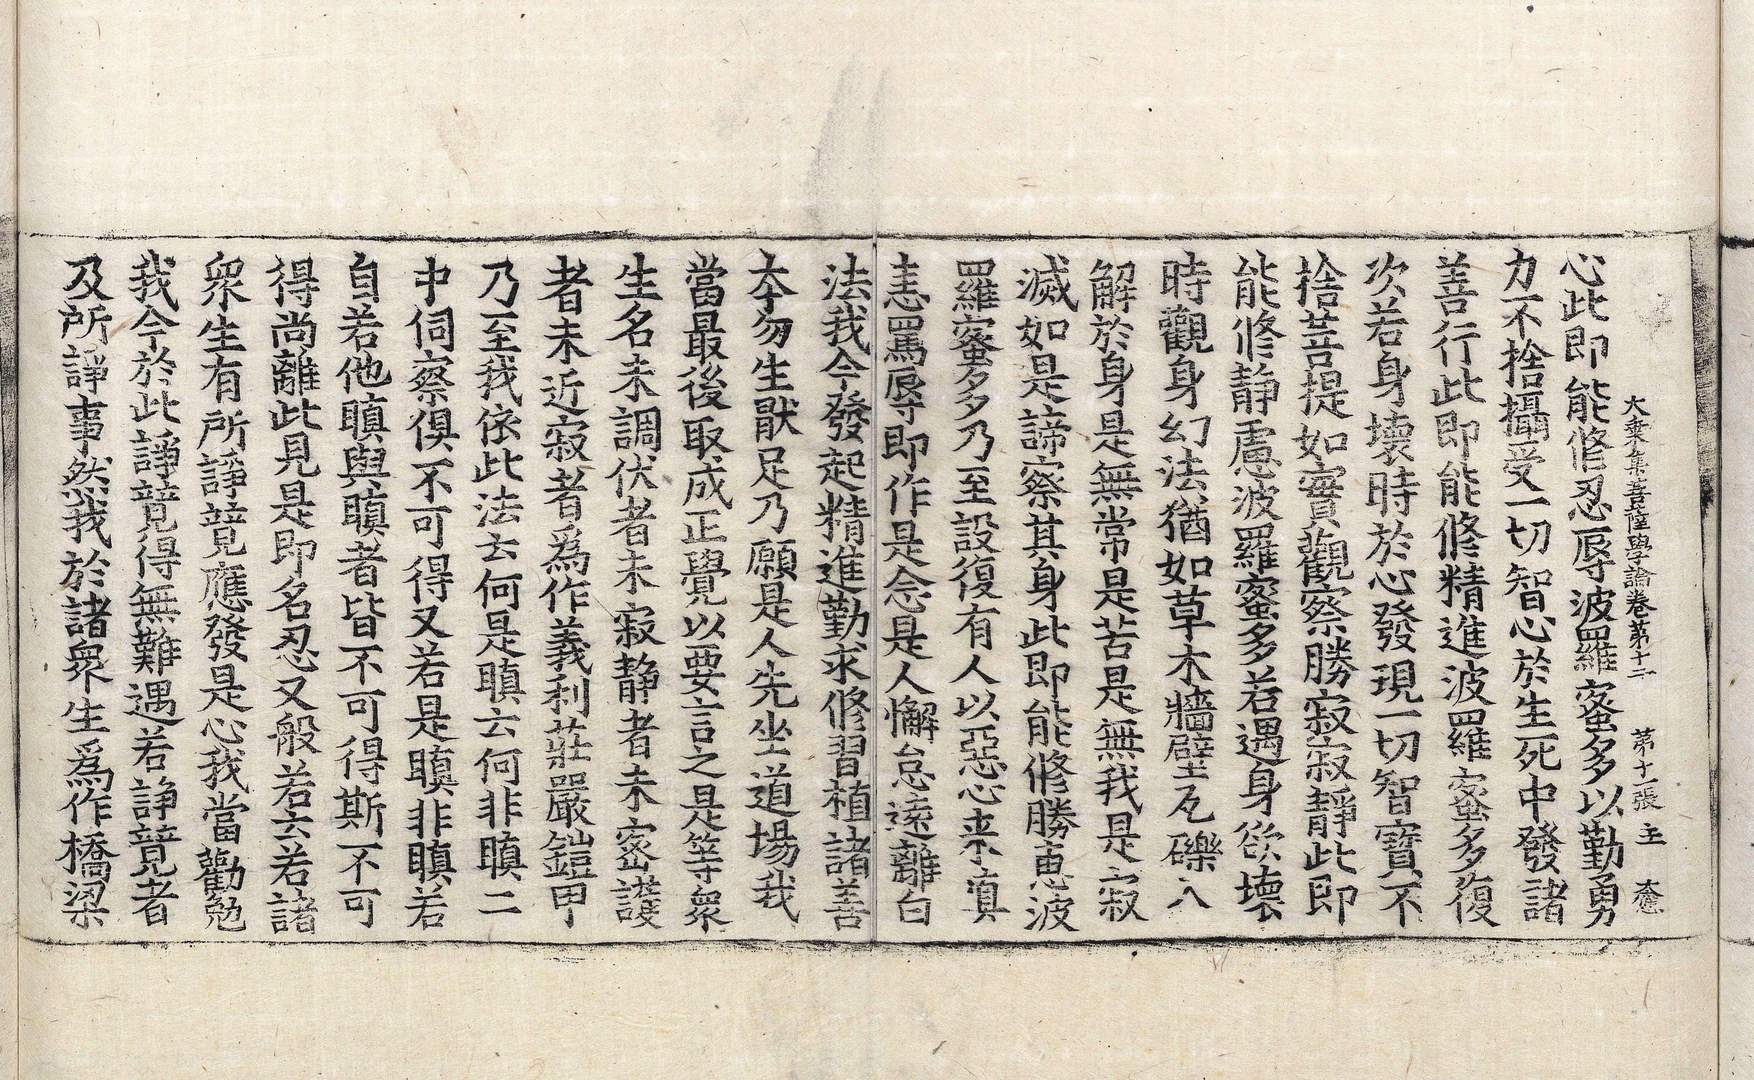 大乘集菩薩學論卷第十二 第十一張 主
心此即能修忍辱波羅蜜多以勤勇
力不捨攝受一切智心於生死中發諸
善行此即能修精進波羅蜜多復
次若身壞時於心發現一切智寶不
捨菩提如實觀察勝寂寂靜此即
能修靜慮波羅蜜多若遇身欲壞
時觀身幻法猶如草木牆壁瓦礫入
解於身是無常是苦是無我是寂
滅如是諦察其身此即能修勝惠波
羅蜜多乃至設復有人以惡心来瞋
恚罵辱即作是念是人懈怠遠離白
法我今發起精進勤求修習植諸善
本勿生猒足乃願是人先坐道場我
當最後取成正覺以要言之是等衆
生名未調伏者未寂靜者未密護
者未近寂者爲作義利莊嚴鎧甲
乃至我依此法云何是瞋云何非瞋二
中伺察俱不可得又若是瞋非瞋若
自若他瞋與瞋者皆不可得斯不可
得尚離此見是即名忍又般若云若諸
衆生有所諍競應發是心我當勸勉
我今於此諍競得無難遇若諍競者
及所諍事然我於諸衆生爲作橋梁